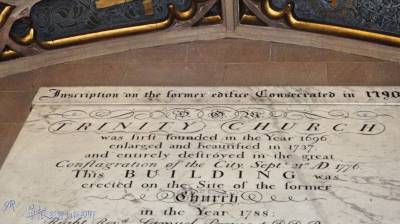 Inscription on the former edifice Consecrated in 1790
TRINITY CHURCH
was first founded in the Year 1696
enlarged and beautified in 1737.
and entirely destroyed in the great
Conflagration of the City Sept.r 21st AD 1776.
This BUILDING was
erected on the Site of the former
Church
in the Year 1788.
Right Rev.d Samuel D.D.